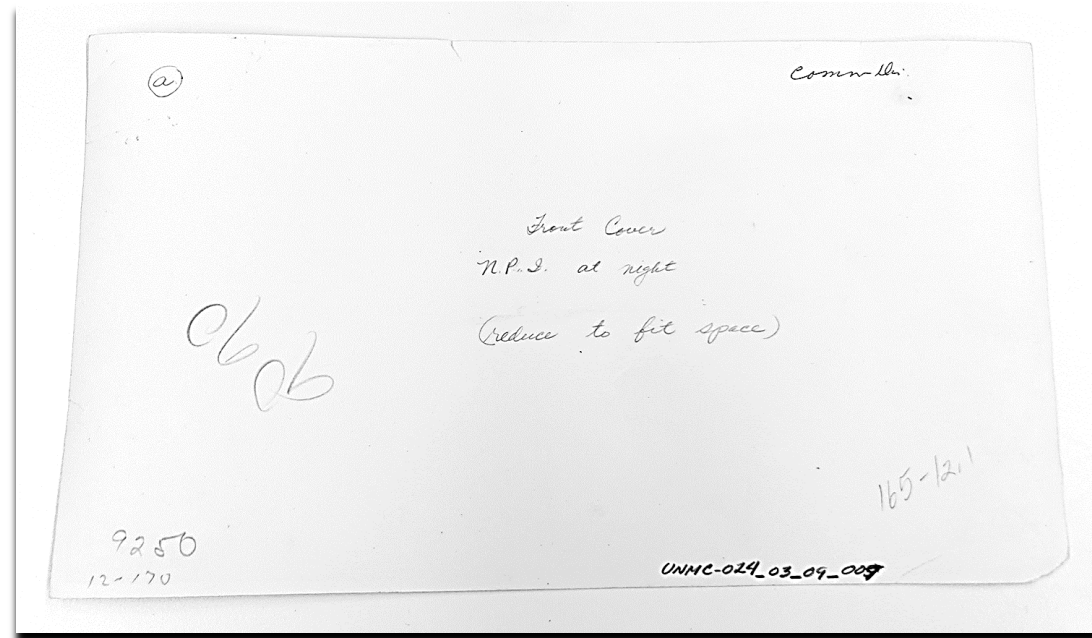 a
Comm
Front Cover
N.P.I. at night
(reduce to fit space)
165-12.1
9250
12-170
UNMC-024_03_09_009